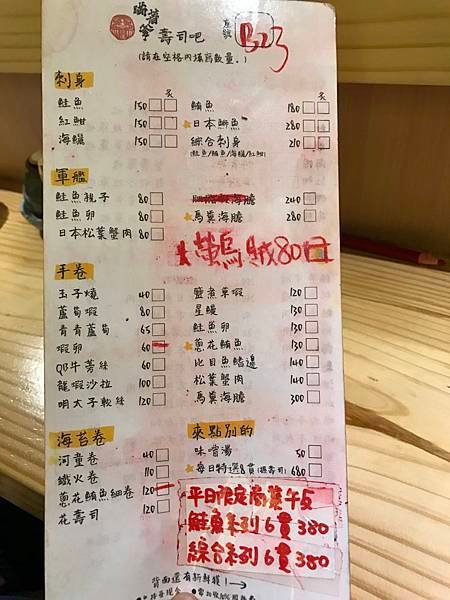 壽司吧
B23
(請在空格內填寫數量。)
刺身
炙
炙
鮭魚 150
鮪魚 180
紅魽 150
日本鰤魚 280
海鱺 150
綜合刺身 210
(鮭魚/鮪魚/海鱺/紅魽)
軍艦
鮭魚親子 80
海膽 240
鮭魚卵 80
馬糞海膽 280
日本松葉蟹肉 80
螢烏賊 80
手卷
玉子燒 40
鹽煮草蝦 120
蘆筍蝦 80
星鰻 130
青青蘆筍 65
鮭魚卵 130
蝦卵 60
蔥花鮪魚 130
QB牛蒡絲 60
比目魚鰭邊 140
龍蝦沙拉 100
松葉蟹肉 140
明太子軟絲 120
馬糞海膽 300
海苔卷
來點別的
河童卷 40
味噌湯 50
鐵火卷 110
每日特選8貫(握壽司) 680
蔥花鮪魚細卷 120
花壽司 120
平日限定商業午
鮭魚系列6貫380
綜合系列6貫380
背面還有新鮮貨!